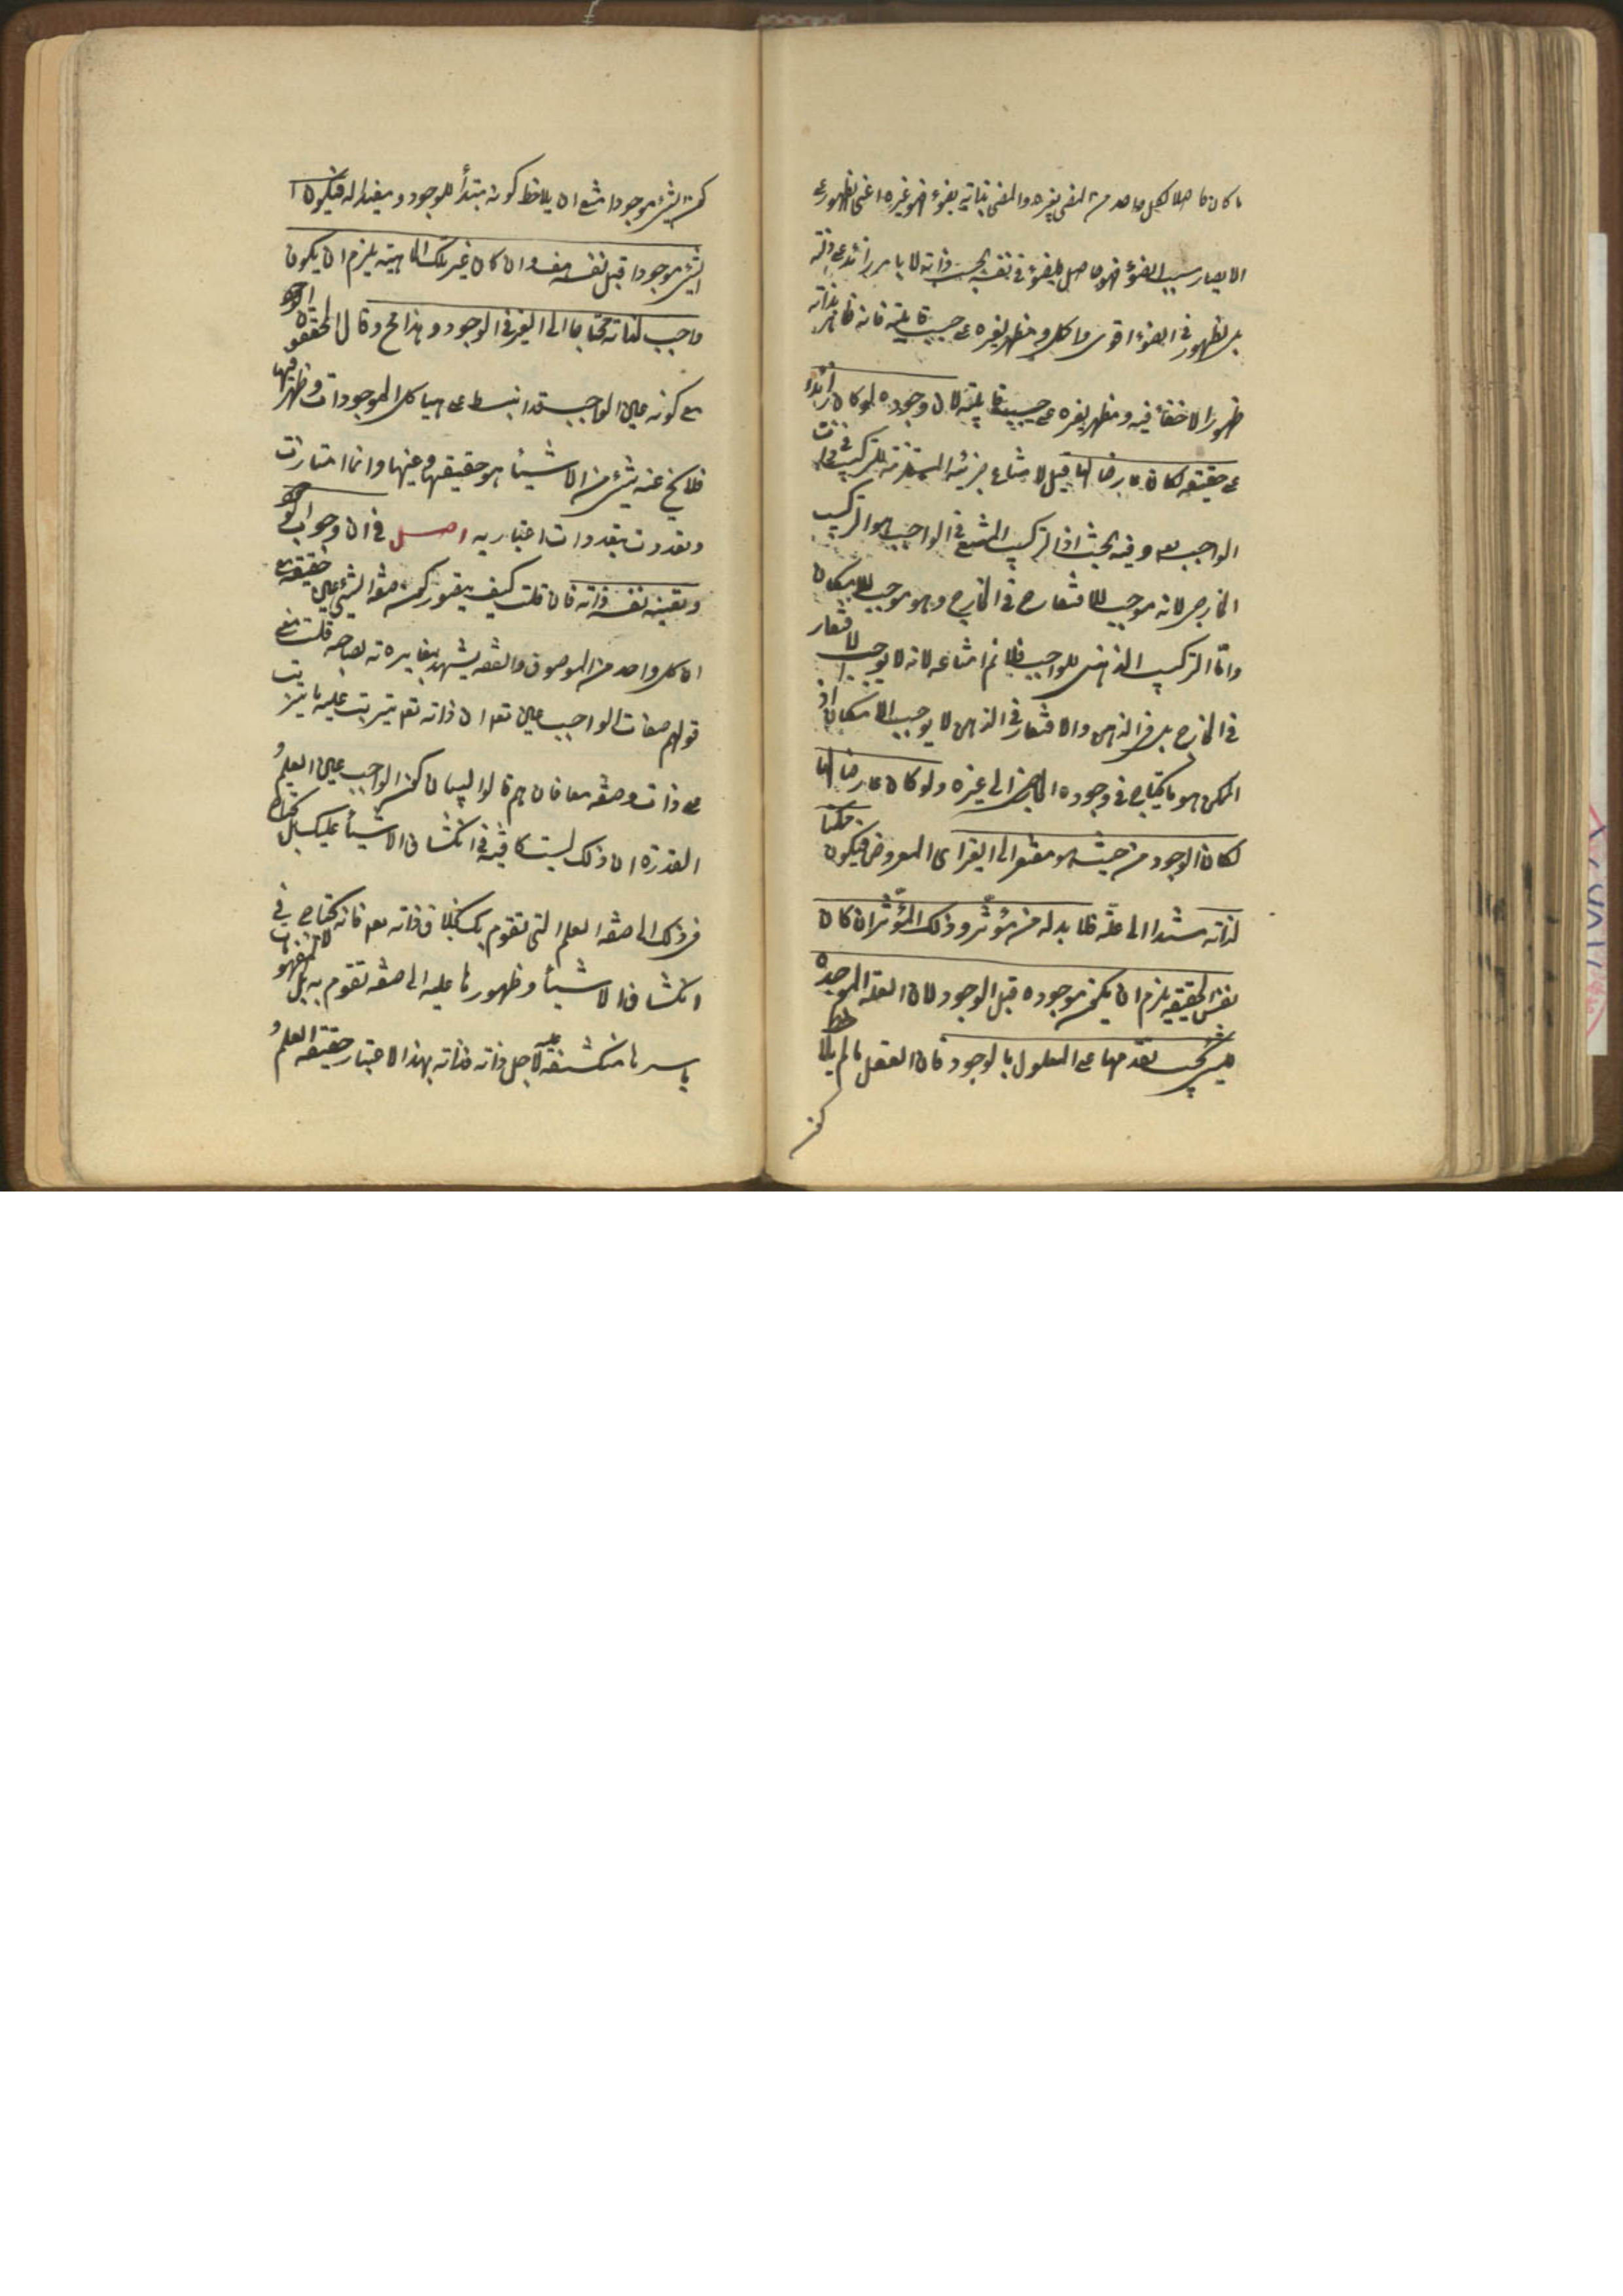 ما كان حاصلا لكل واحد من المضى بغيره والمضى بذاته بضوء هو غيره اعنى الظهور على
الابصار بسبب الضوء فهو حاصل للضوء فى نفسه بحسب ذاته لا بامر زائد على ذاته
بل الظهور فى الضوء اقوى واكمل وهو مظهر لغيره على حسب قابليته فانه ظاهر بذاته
ظهورا لا خفاء فيه ومظهر لغيره على حسب قابليته لان وجوده لو كان زائدا
على حقيقته لكان عارضا لها قيل لامتناع جزئيته المستلزمة للتركيب فى ذات
الواجب تعه وفيه بحث اذ التركيب الممتنع فى الواجب هو التركيب
الخارجى لانه موجب للافتقار فى الخارج وهو موجب للامكان
واما التركيب الذهنى للواجب فلا نم امتناعه لانه لا يوجب الافتقار
فى الخارج بل فى الذهن والافتقار فى الذهن لا يوجب الامكان اذ
الممكن هو ما يحتاج فى وجوده الخارجى الى غيره ولو كان عارضا لها
لكان الوجود من حيث هو مفتقرا الى الغير اى المعروض فيكون ممكنا
لذاته مستندا الى علة فلا بد له من مؤثر وذلك المؤثر ان كان
نفس الحقيقة يلزم ان يكون موجودة قبل الوجود لان العلة الموجدة
للشئ يجب تقدمها على المعلول بالوجود فان العقل ما لم يلاحظ
كون
كون الشئ موجودا امتنع ان يلاحظ كونه مبتدأ للوجود ومفيدا له فيكون
الشئ موجودا قبل نفسه هف وان كان غير تلك الماهية يلزم ان يكون
واجب لذاته محتاجا الى الغير فى الوجود وهذا مح وقال المحققون الوجود
مع كونه عين الواجب قد انبسط على هياكل الموجودات وظهر فيها
فلا يخ عنه شئ من الاشياء هو حقيقتها وعينها وانما امتازت
وتعددت بتعددات اعتباريه اصل فى ان وجوب الوجود
وتعينه نفس ذاته فان قلت كيف يتصور كون صفة الشئ عين حقيقته مع
ان كل واحد من الموصوف والصفة يشهد بمغايرته لصاحبه قلت معنى
قولهم صفات الواجب عين تعه ان ذاته تعه يترتب عليه ما يترتب
على ذات وصفة معا فان هم قالوا ليس ان كون الواجب عين العلم
القدرة ان ذلك ليست كافية فى انكشاف الاشياء عليك بل تحتاج
فى ذلك الى صفة العلم التى تقوم بك بخلاف ذاته تعه فانه لا يحتاج فى
انكشاف الاشياء وظهورها عليه الى صفة تقوم به بل المفهومات
باسرها منكشفة عليه لاجل ذاته فذاته بهذا الاعتبار حقيقة العلم